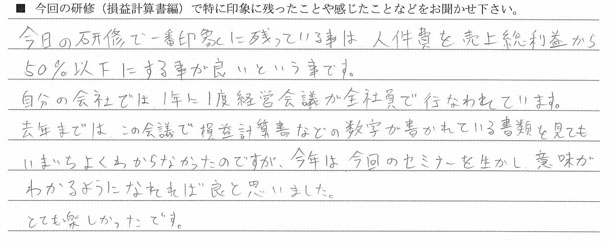 ■ 今回の研修（損益計算書編）で特に印象に残ったことや感じたことなどをお聞かせ下さい。
今日の研修で一番印象に残っている事は 人件費を売上総利益から
50%以下にする事が良いという事です。
自分の会社では 1年に1度経営会議が全社員で行なわれています。
去年までは この会議で損益計算書などの数字が書かれている書類を見ても
いまいちよくわからなかったのですが、今年は 今回のセミナーを生かし、意味が
わかるようになれれば良と思いました。
とても楽しかったです。